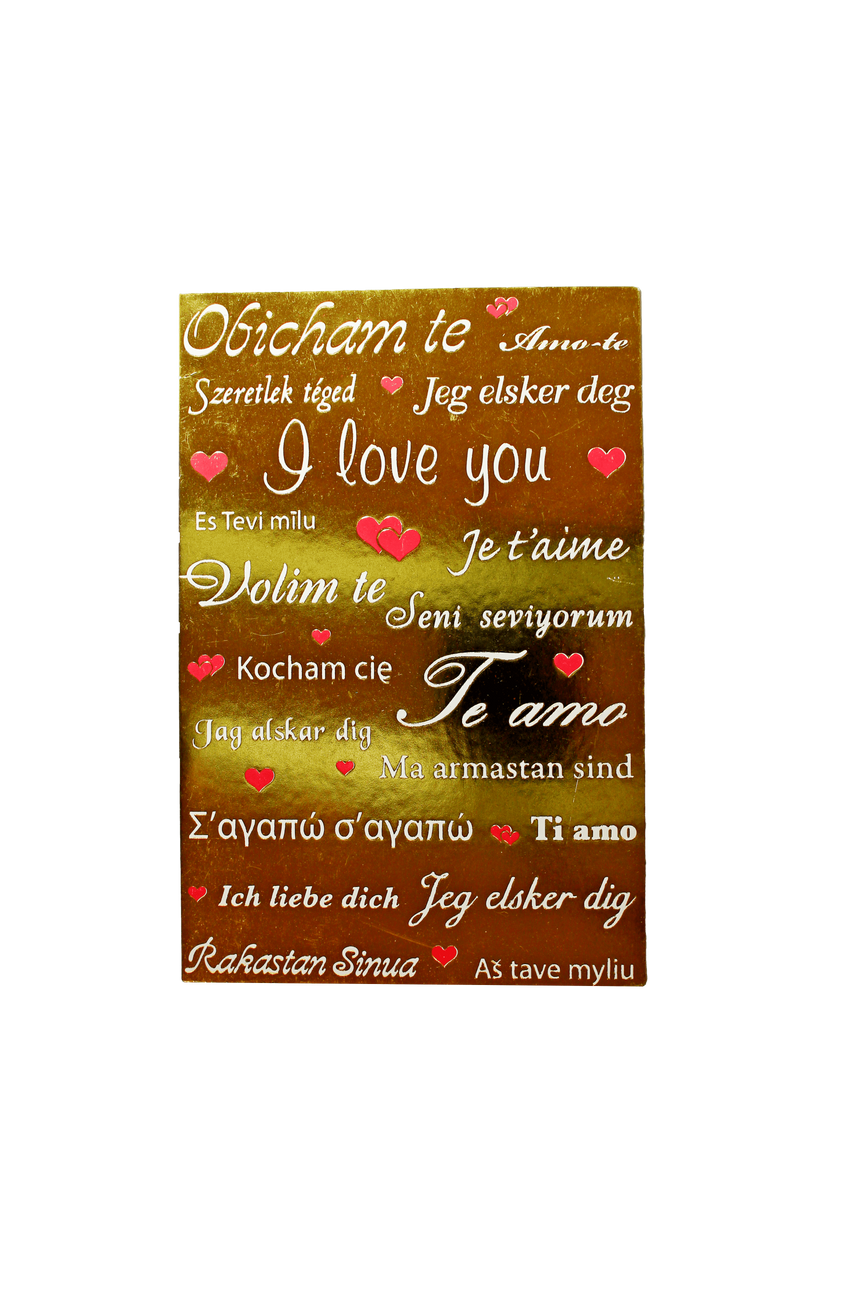 Obicham te
Amo-te
Szeretlek téged
Jeg elsker deg
I love you
Es Tevi mīlu
Je t'aime
Volim te
Seni seviyorum
Kocham cię
Te amo
Jag alskar dig
Ma armastan sind
Σ'αγαπώ σ'αγαπώ
Ti amo
Ich liebe dich
Jeg elsker dig
Rakastan Sinua
Aš tave myliu